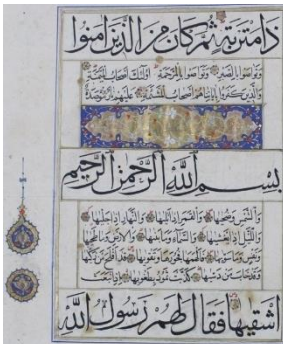 ذا متربة ثم كان من الذين امنوا
وتواصوا بالصبر وتواصوا بالمرحمة اولئك اصحاب الميمنة
والذين كفروا باياتنا هم اصحاب المشئمة عليهم نار موصدة
بسم الله الرحمن الرحيم
والشمس وضحيها والقمر اذا تليها والنهار اذا جليها
والليل اذا يغشيها والسماء وما بنيها والارض وما طحيها
ونفس وما سويها فالهمها فجورها وتقويها قد افلح من زكيها
وقد خاب من دسيها كذبت ثمود بطغويها اذ انبعث
اشقيها فقال لهم رسول الله